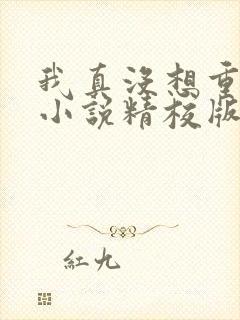 我真没想重
小说精校版
红九